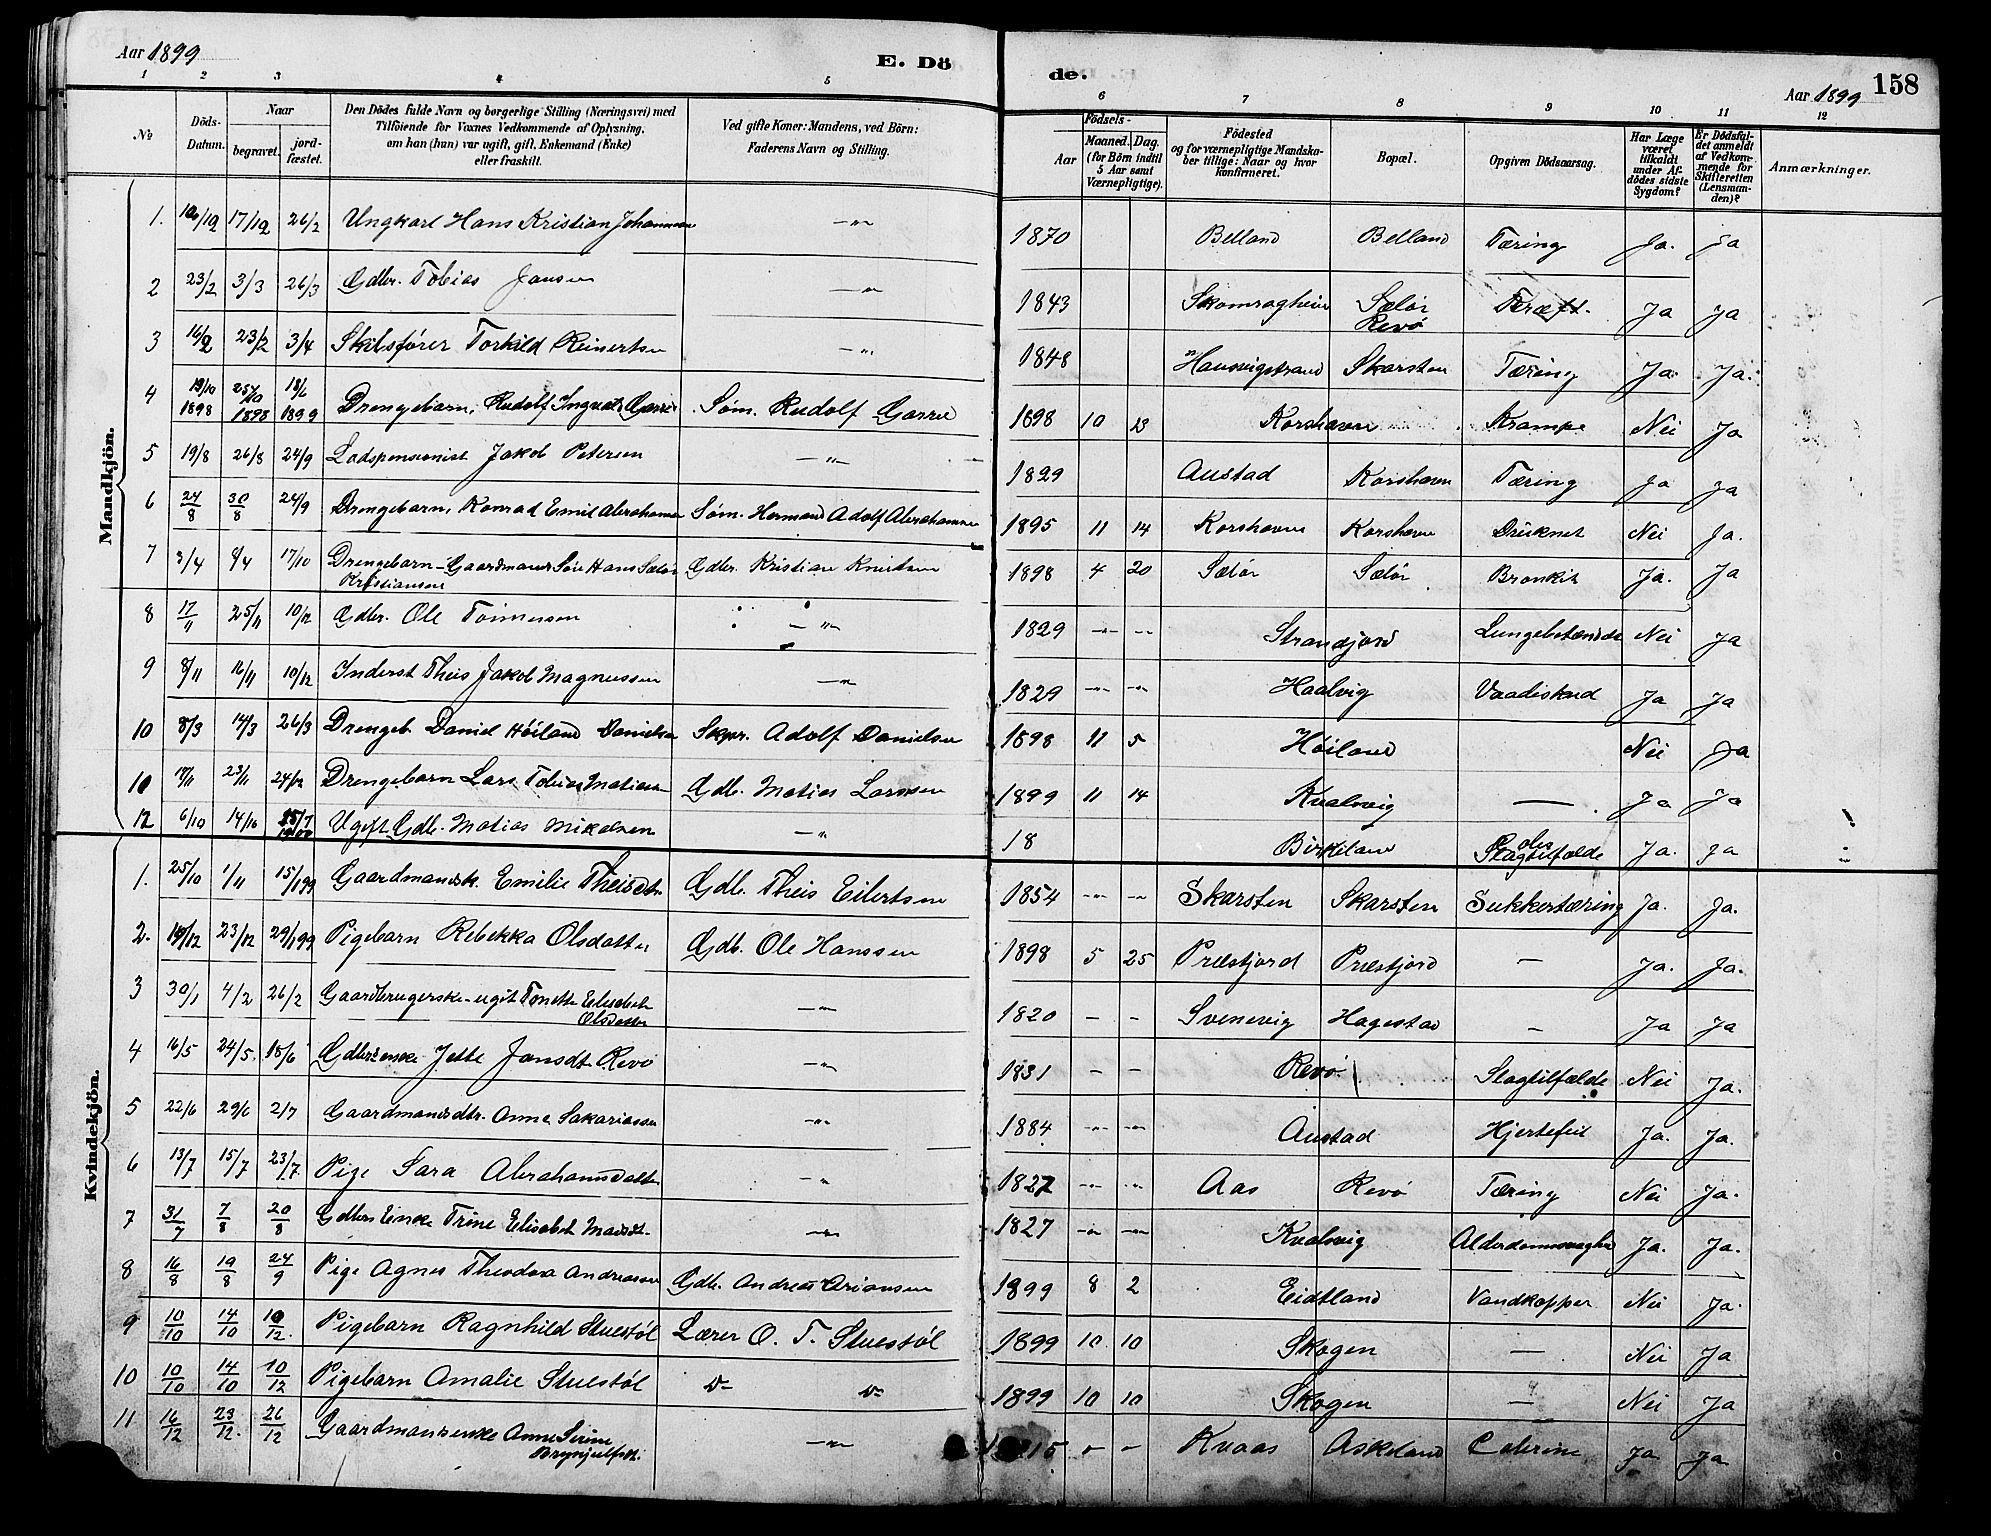 Aar 1899 E. Dö de. Aar 1899 158
1 2 3 4 5 6 7 8 9 10 11 12
No
Döds-Datum.
Naar
begravet.
jordfæstet.
Den Dödes fulde Navn og borgerlige Stilling (Næringsvei) med
Tilföiende for Voxnes Vedkommende af Oplysning,
om han (hun) var ugift, gift, Enkemand (Enke)
eller fraskilt.
Ved gifte Koner: Mandens, ved Börn:
Faderens Navn og Stilling.
Födsels-
Aar
Maaned. Dag.
(for Börn indtil
5 Aar samt
Værnepligtige).
Födested
og for værnepligtige Mandskaber tillige: Naar og hvor
konfirmeret.
Bopæl.
Opgiven Dödsaarsag.
Har Læge
været
tilkaldt
under Afdödes sidste
Sygdom?
Er Dödsfaldet anmeldt
af Vedkommende for
Skifteretten
(Lensmanden)?
Anmærkninger.
Mandkjön.
1. 17/12 26/2 Ungkarl Hans Kristian Johannsen —„— 1870 Belland Belland Tæring Ja. Ja
2 23/2 3/3 26/3 Gdbr. Tobias Jansen —„— 1843 Skomragheim Sælør Revø Kræft. Ja Ja
3 16/2 23/2 3/4 Skibsfører Torkild Reinertsen —„— 1848 Skarsten Tæring Ja. Ja.
4 19/10 1898 25/10 1898 18/6 1899 Drengebarn, Rudolf Ingvald Garre Søm. Rudolf Garre 1898 10 13 Korshavn Krampe Nei Ja
5 19/8 26/8 24/9 Lodspensionist Jakob Petersen —„— 1829 Austad Korshavn Tæring Ja Ja
6 24/8 30/8 24/9 Drengebarn, Konrad Emil Abrahamsen Søm. Herman Adolf Abrahamsen 1895 11 14 Korshavn Korshavn Druknet Nei Ja.
7 3/4 8/4 17/10 Drengebarn-Gaardmands Søn Hans Sælør
Kristiansen Gdbr. Kristian Knutsen 1898 4 20 Sælør Sælør Bronkit Ja. Ja
8 17/11 25/11 10/12 Gdbr. Ole Tønnessen —„— 1829 —„— —„— Strandjord Lungebetændelse Nei Ja
9 8/11 16/11 10/12 Inderst Theis Jakob Magnussen —„— 1829 —„— —„— Haalvig Vaadeskud Ja Ja
10 8/3 14/3 26/3 Drengeb. Daniel Høiland Danielsen Skpr. Adolf Danielsen 1898 11 5 Høiland Nei Ja
10 23/11 24/12 Drengebarn Lars Tobias Matiassen Gdb. Matias Larssen 1899 11 14 Kvalvig — Ja Ja
12 6/10 14/10 Ugift Gdb. Matias Mikalsen —„— 18 Birkeland Slagtilfælde Ja. Ja
Kvindekjön.
1. 25/10 1/11 15/1 99 Gaardmandsk. Emilie Theisdtr Gdb. Theis Eilertsen 1854 —„— —„— Skarsten Skarsten Sukkertæring Ja. Ja.
2. 23/12 29/1 99 Pigebarn Rebekka Olsdatter Gdb. Ole Hanssen 1898 5 25 Præstjord Præstjord — Ja. Ja.
3 30/1 4/2 26/2 Gaardbrugerske-ugit Tonette Elisabet
Olsdatter —„— 1820 — — Svenevig Hagestad — Ja Ja
4 16/5 24/5. 18/6 Gdbrsenke Jette Jansdt Revø —„— 1831 — — Revø Slagtilfælde Nei Ja.
5 22/6 29/6 2/7 Gaardmandsdtr. Anne Sakariassen —„— 1884 —„— —„— Austad Hjertefeil Ja. Ja.
6 13/7 15/7 23/7 Pige Sara Abrahamsdatter —„— 1827 —„— —„— Aas Revø Tæring Nei Ja.
7 31/7 7/8 20/8 Gdbrs Enke Trine Elisabet Madsdt. —„— 1827 —„— —„— Kvalvig Alderdomssvaghed Ja. Ja.
8 16/8 19/8 24/9 Pige Agnes Theodora Andreassen Gdb. Andreas Ariansen 1899 8 2 Eidtland Vandkopper Nei Ja.
9 10/10 14/10 10/12. Pigebarn Ragnhild Stuestøl Lærer O. T. Stuestøl 1899 10 10 Skogen — Nei Ja
10 10/10 14/10 10/12 Pigebarn Amalie Stuestøl D— D— 1899 10 10 Skogen — Nei Ja
11 16/12 23/12. 26/12 Gaardmandsenke Anne Serine
Brynjulfsdt. —„— 15 — — Kvaas Askeland Colerine Ja Ja